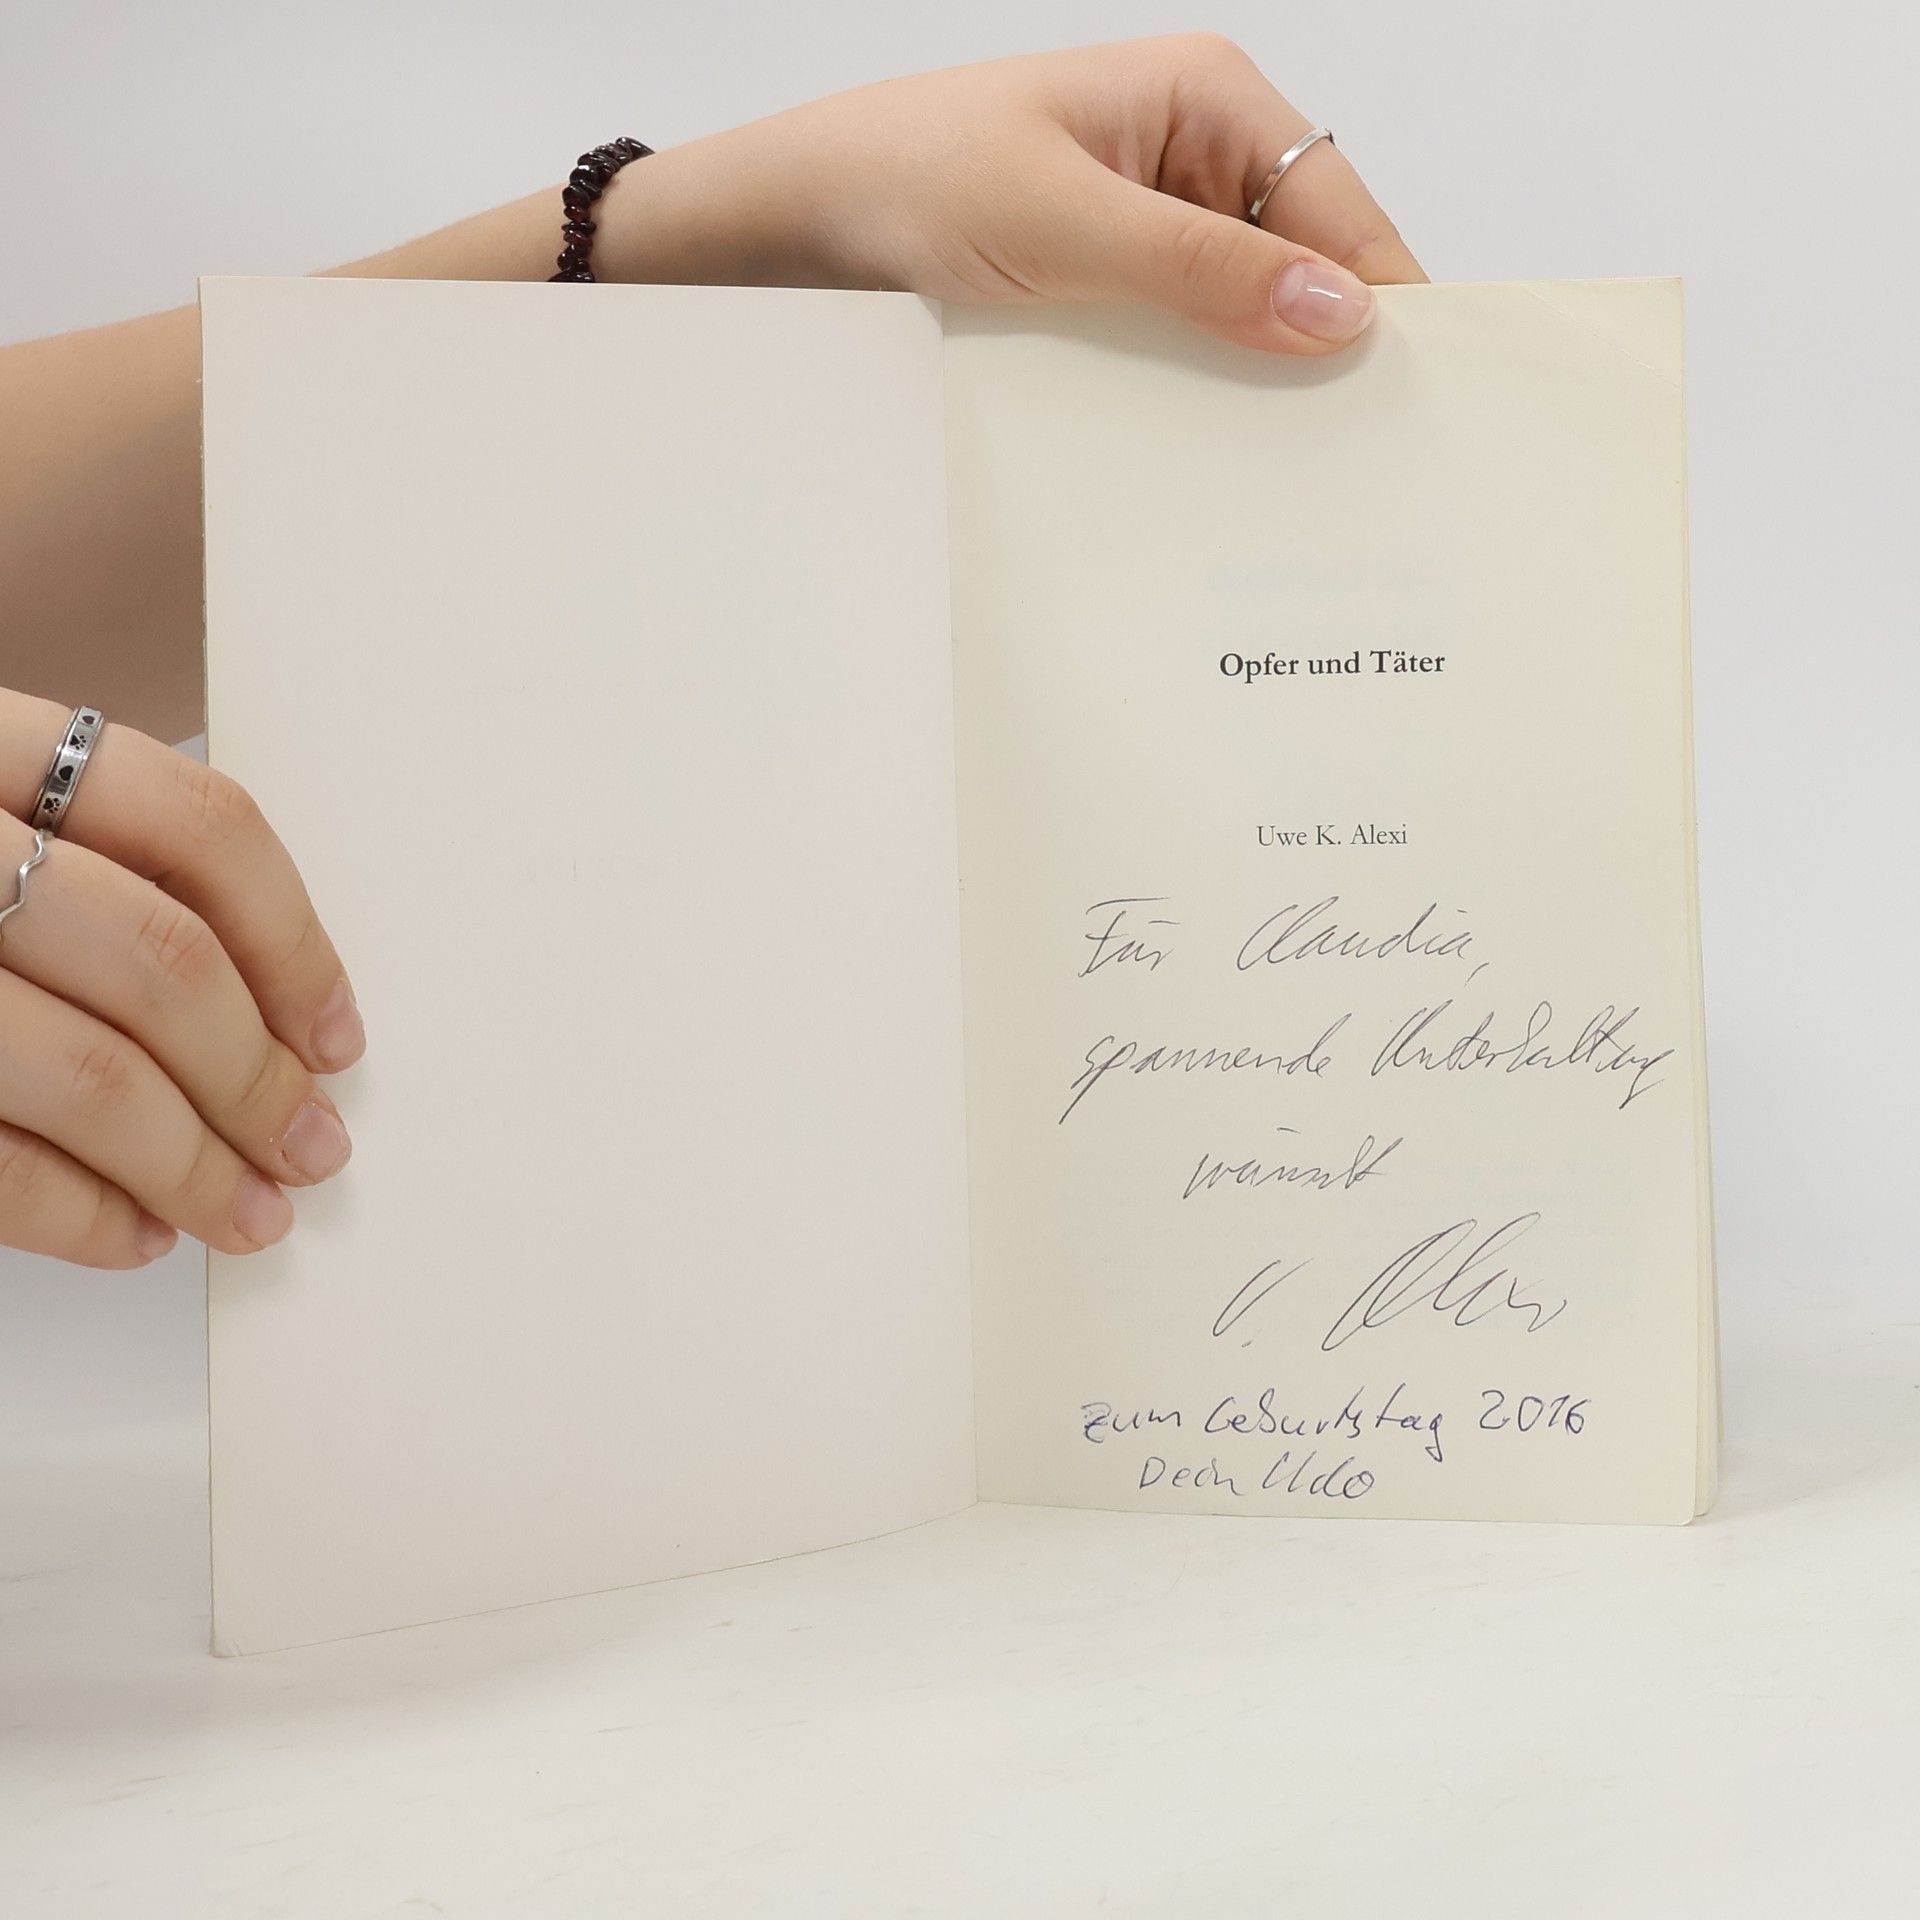 Opfer und Täter
Uwe K. Alexi
Für Claudia,
spannende Unterhaltung
wünscht
U. Alexi
Zum Geburtstag 2016
Dein Udo